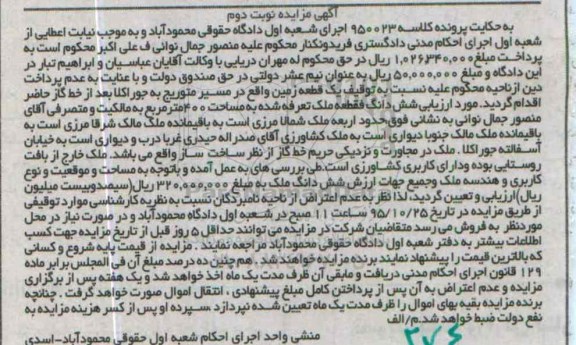 آگهی مزایده نوبت دوم
به حکایت پرونده کلاسه ۹۵۰۰۲۳ اجرای شعبه اول دادگاه حقوقی محمودآباد و به موجب نیابت اعطایی از
شعبه اول اجرای احکام مدنی دادگستری فریدونکنار محکوم علیه منصور جمال نوائی ف علی اکبر محکوم است به
پرداخت مبلغ ۱,۰۲۶,۳۴۰,۰۰۰ ریال در حق محکوم له مهران دریایی با وکالت آقایان عباسیان و ابراهیم تبار در
این دادگاه و مبلغ ۵۰,۰۰۰,۰۰۰ ریال به عنوان نیم عشر دولتی در حق صندوق دولت و با عنایت به عدم پرداخت
دین از ناحیه محکوم علیه نسبت به توقیف یک قطعه زمین واقع در مسیر متوریج به جورکلا بعد از خط گاز حاضر
اقدام گردید. مورد ارزیابی شش دانگ قطعه ملک تعرفه شده به مساحت ۴۰۰ مترمربع به مالکیت و متصرفی آقای
منصور جمال نوائی به نشانی فوق حدود اربعه ملک شمالا مرزی است به باقیمانده ملک مالک شرقا مرزی است به
باقیمانده ملک مالک جنوبا دیواری است به ملک کشاورزی آقای صدراله حیدری غربا درب و دیواری است به خیابان
آسفالته جورکلا . ملک در مجاورت و نزدیکی حریم خط گاز از نظر ساخت ساز واقع می باشد. ملک خارج از بافت
روستایی بوده و دارای کاربری کشاورزی است.طی بررسی های به عمل آمده و باتوجه به مساحت و موقعیت و نوع
کاربری و هندسه ملک وجمیع جهات ارزش شش دانگ ملک به مبلغ ۳۲۰,۰۰۰,۰۰۰ ریال(سیصدوبیست میلیون
ریال)ارزیابی و تعیین گردید، لذا نظر به عدم اعتراض از ناحیه نامبردگان نسبت به نظریه کارشناسی موارد توقیفی
از طریق مزایده در تاریخ ۹۵/۱۰/۲۵ ساعت ۱۱ صبح در شعبه اول دادگاه محمودآباد و در صورت نیاز در محل
موردنظر به فروش می رسد متقاضیان شرکت در مزایده می توانند حداقل ۵ روز قبل از تاریخ مزایده جهت کسب
اطلاعات بیشتر به دفتر شعبه اول دادگاه حقوقی محمودآباد مراجعه نمایند . مزایده از قیمت پایه شروع و کسانی
که بالاترین قیمت را پیشنهاد نمایند برنده مزایده خواهند شد . هم چنین ده درصد مبلغ آن فی المجلس برابر ماده
۱۲۹ قانون اجرای احکام مدنی دریافت و مابقی آن ظرف مدت یک ماه اخذ خواهد شد و یک هفته پس از برگزاری
مزایده و عدم اعتراض به آن پس از پرداختن کامل مبلغ پیشنهادی ، انتقال اموال صورت خواهد گرفت . چنانچه
برنده مزایده بقیه بهای اموال را ظرف مدت یک ماه تعیین شده نپردازد سپرده او پس از کسر هزینه مزایده به
نفع دولت ضبط خواهد شد.م/الف
۳۷۶
منشی واحد اجرای احکام شعبه اول حقوقی محمودآباد-اسدی